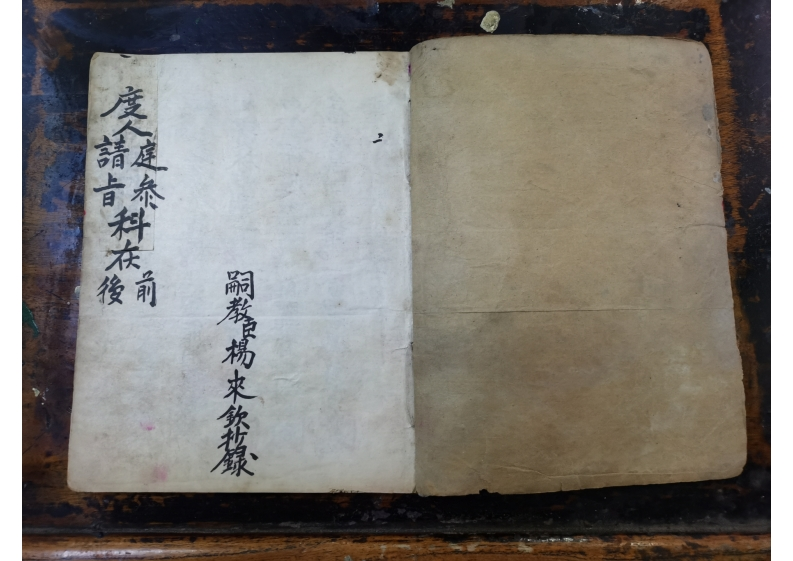 二
嗣教臣楊來欽抄錄
度人庭參請旨科在前後